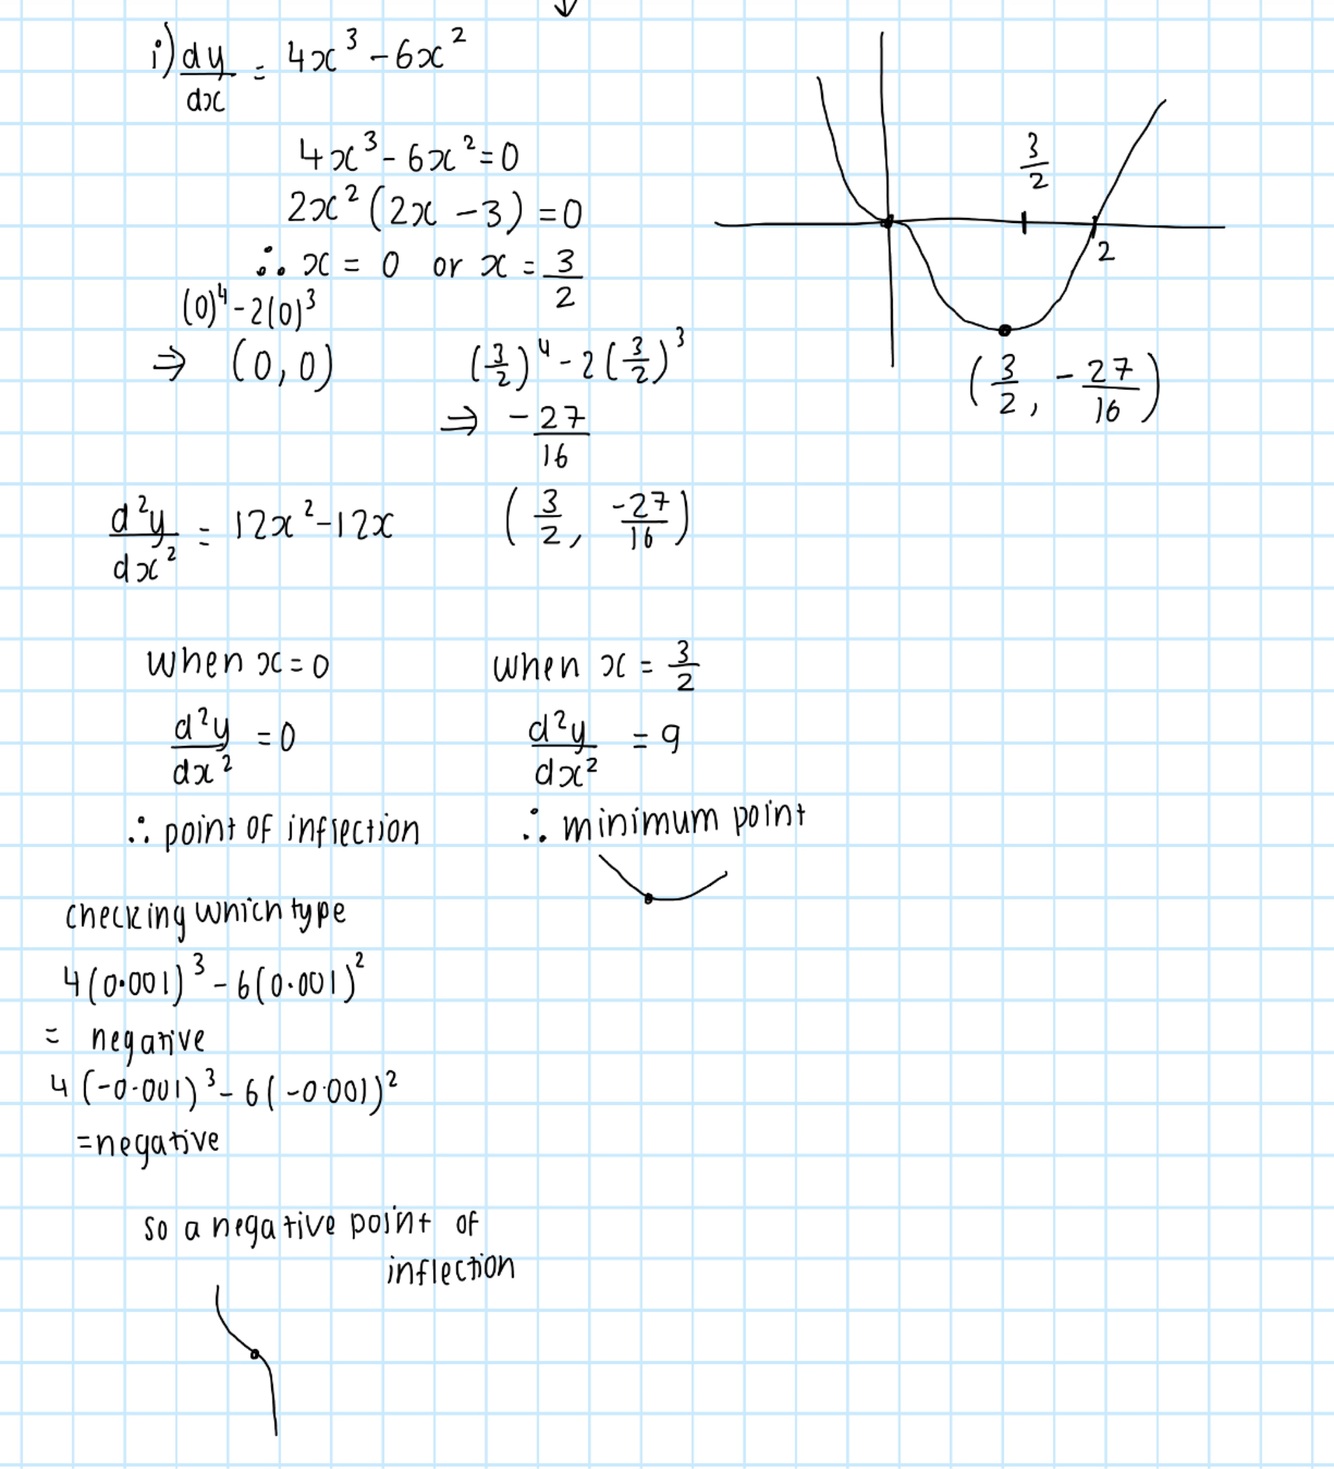 i) dy/dx = 4x³ - 6x²
4x³ - 6x² = 0
2x²(2x - 3) = 0
∴ x = 0 or x = 3/2
(0)⁴ - 2(0)³
⇒ (0, 0)
(3/2)⁴ - 2(3/2)³
⇒ -27/16
(3/2, -27/16)
3/2
2
(3/2, -27/16)
d²y/dx² = 12x² - 12x
when x = 0
d²y/dx² = 0
∴ point of inflection
when x = 3/2
d²y/dx² = 9
∴ minimum point
checking which type
4(0.001)³ - 6(0.001)²
= negative
4(-0.001)³ - 6(-0.001)²
= negative
so a negative point of
inflection